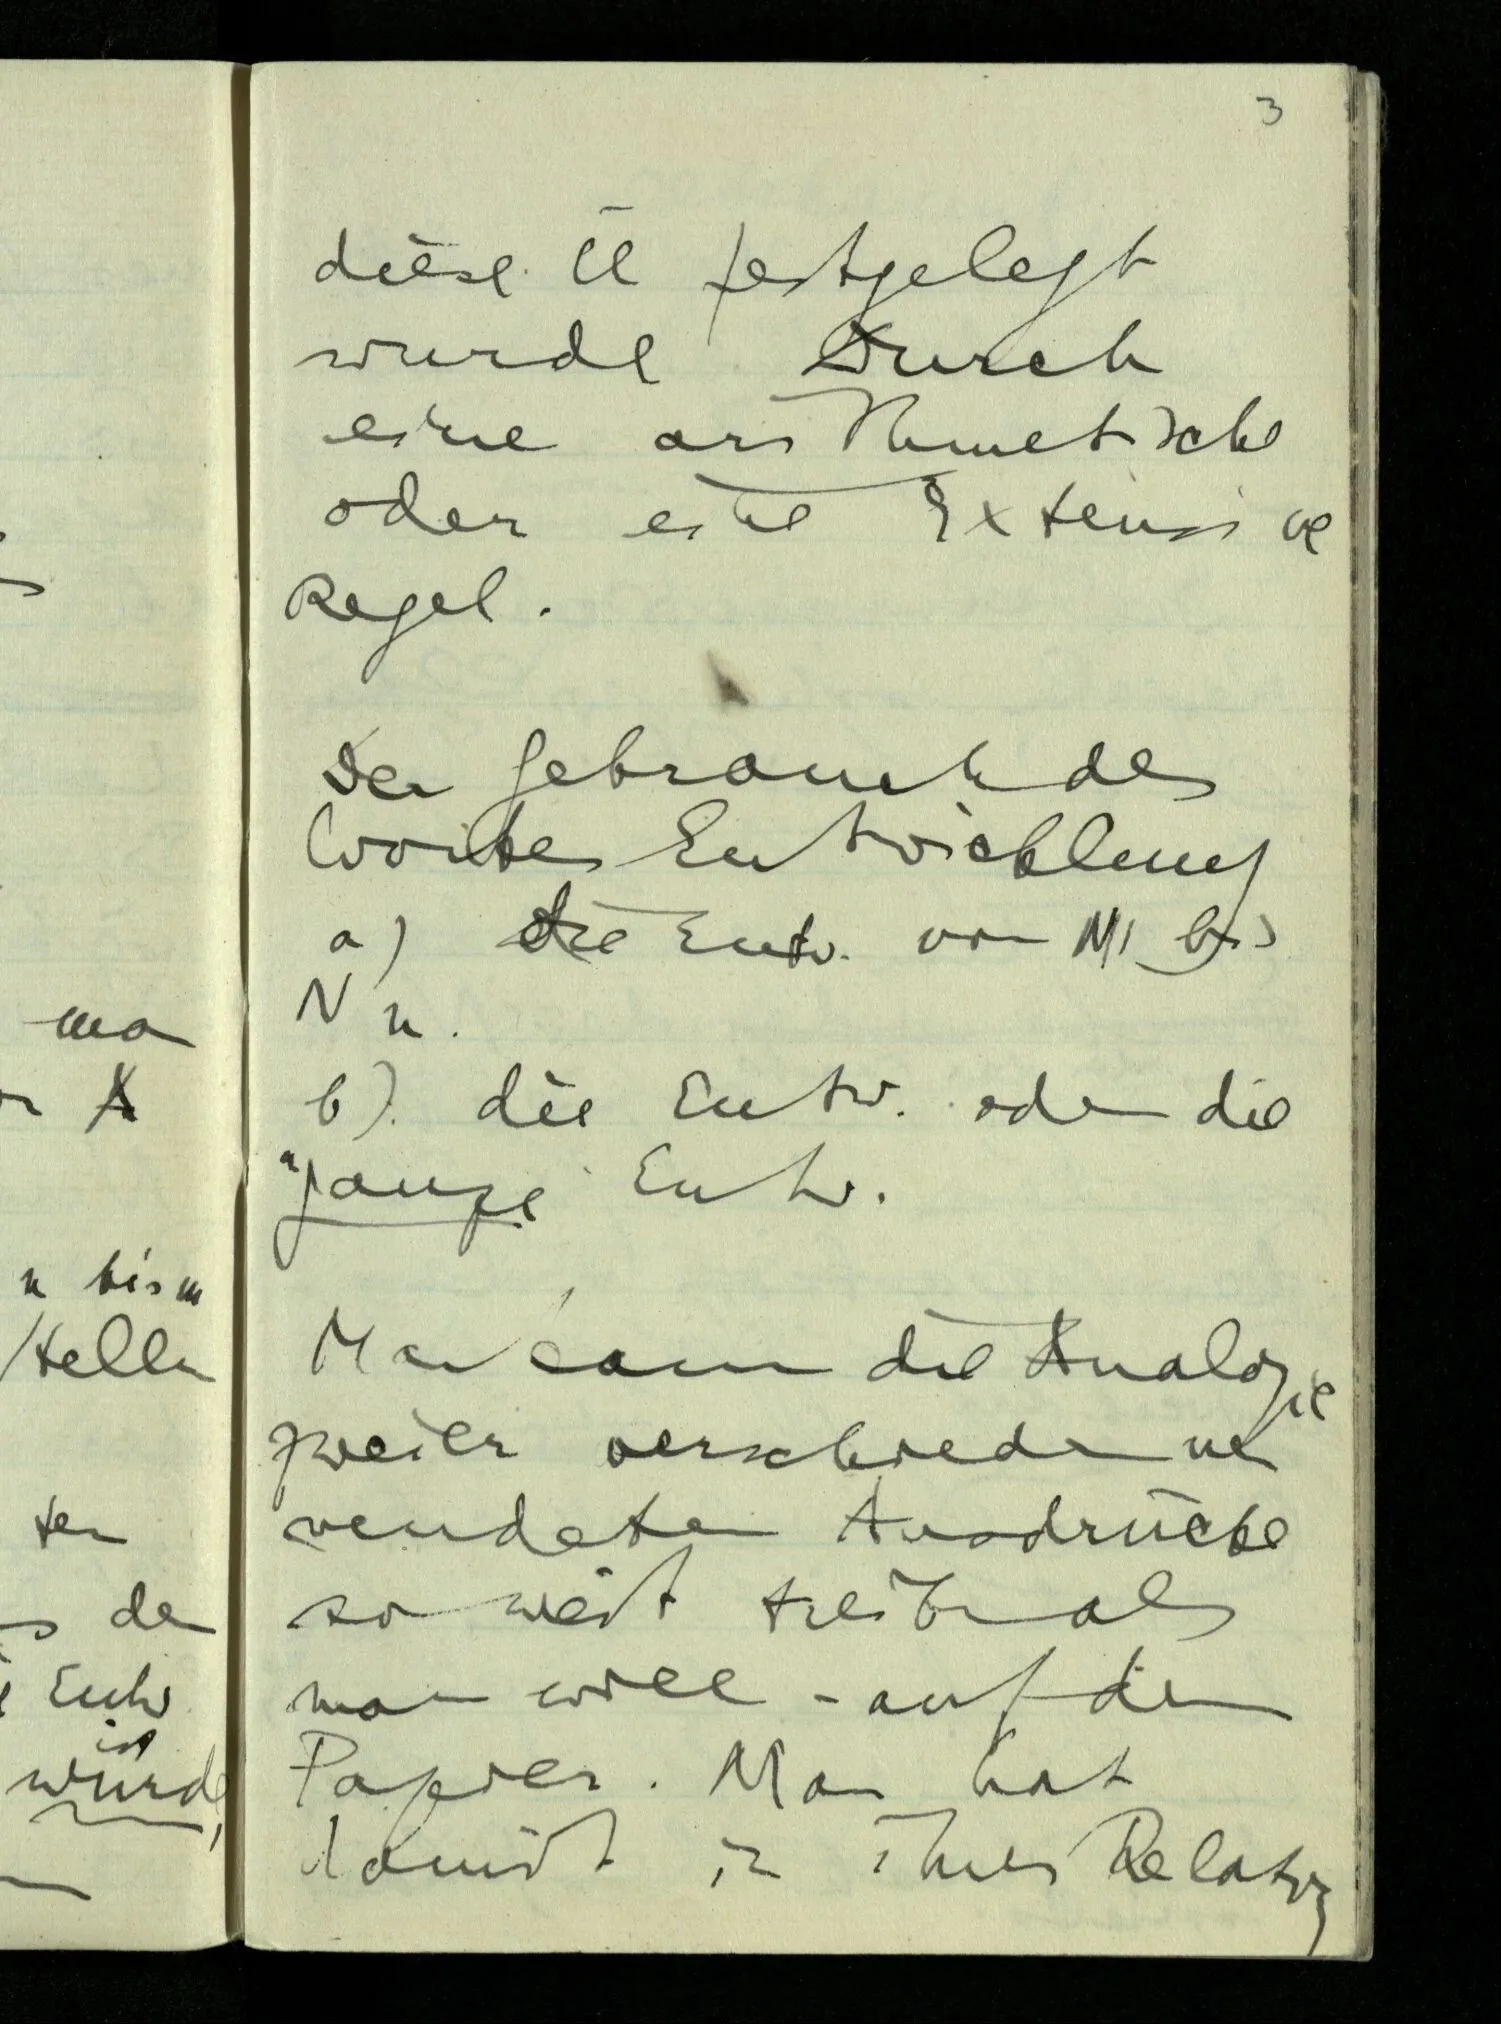 3
diese Ü festgelegt
wurde durch
eine arithmetische
oder eine Extensive
Regel.
Der Gebrauch des
Wortes Entwicklung
a) die Entw. von N1 bis
N n.
b). die Entw. oder die
"ganze Entw.
Man kann die Analogie
zweier verschieden ver
wendeten Ausdrücke
so weit treiben als
man will - auf dem
Papier. Man hat
damit in ihrer Relation
ma
n bis m
stellen
ten
den
Entw
ist
würde,